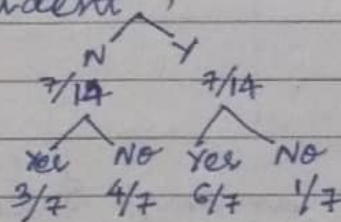 N Y
7/14 7/14
Yes No Yes No
3/7 4/7 6/7 1/7